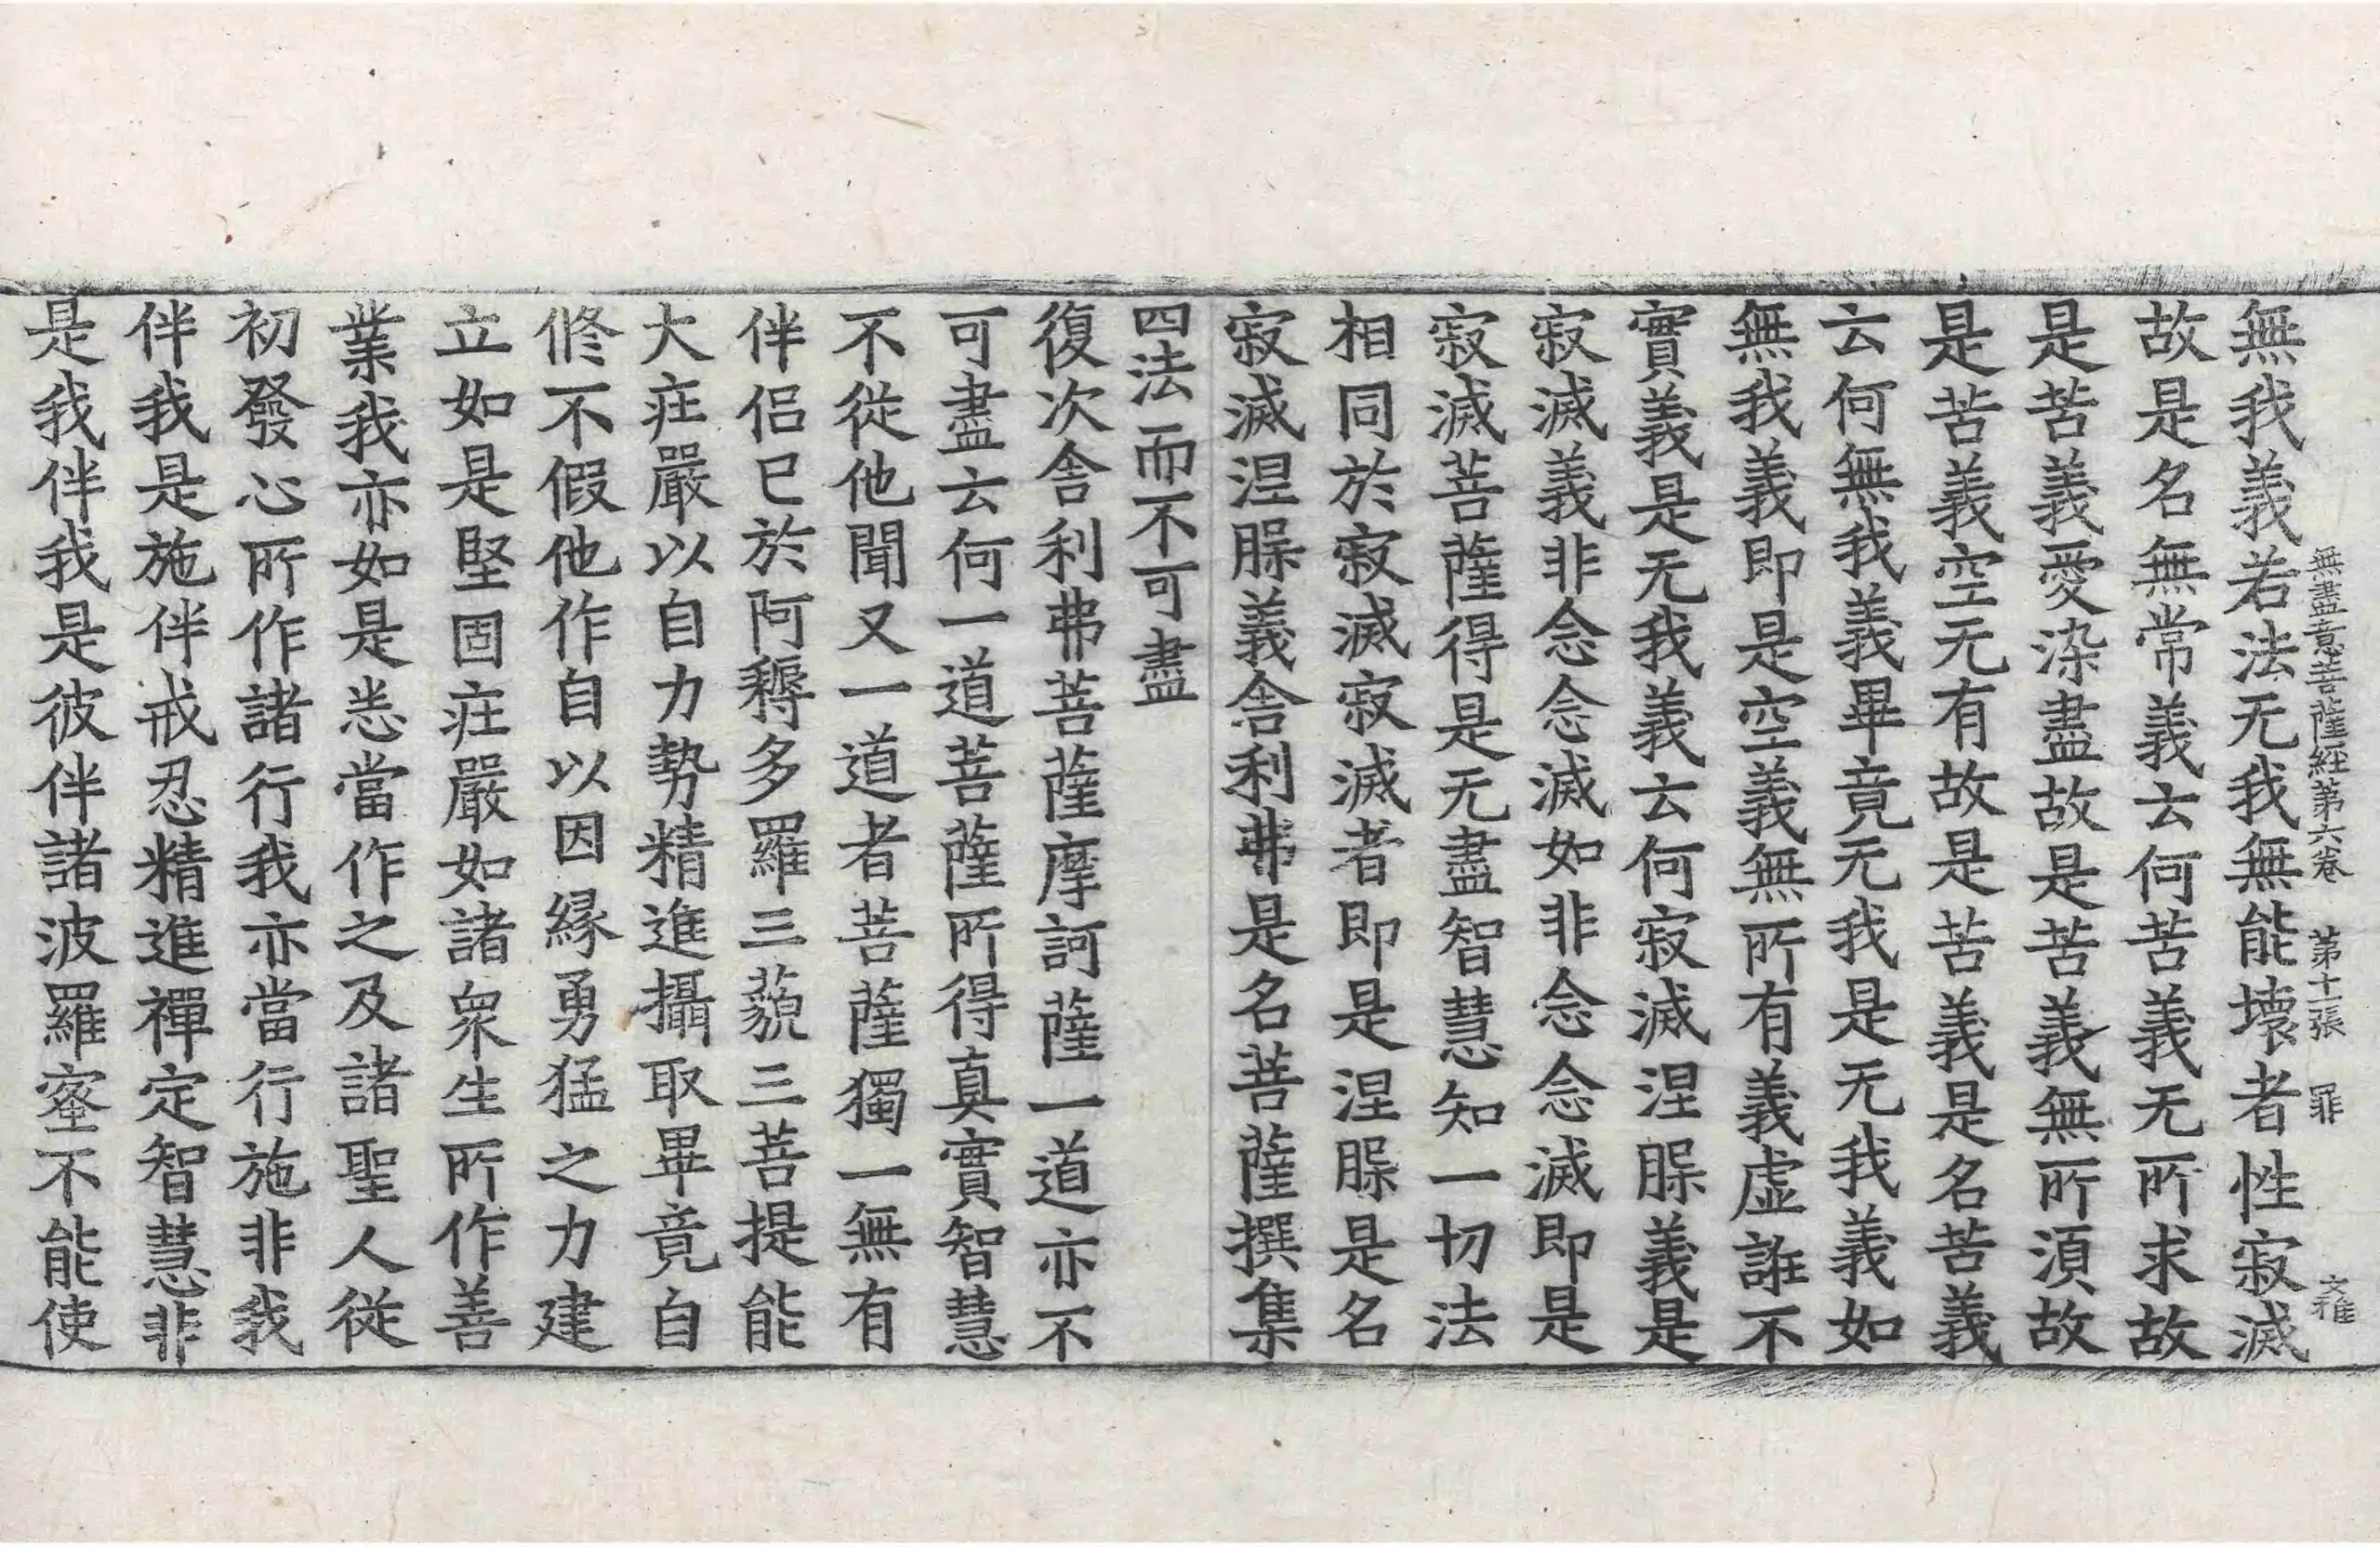 無盡意菩薩経第六卷 第十一張 罪 文雅
無我義若法无我無能壞者性寂滅
故是名無常義云何苦義无所求故
是苦義愛染盡故是苦義無所湏故
是苦義空无有故是苦義是名苦義
云何無我義畢竟无我是无我義如
無我義即是空義無所有義虛誑不
實義是无我義云何寂滅涅脲義是
寂滅義非念念滅如非念念滅即是
寂滅菩薩得是无盡智慧知一切法
相同於寂滅寂滅者即是涅脲是名
寂滅涅脲義舍利弗是名菩薩撰集
四法而不可盡
復次舍利弗菩薩摩訶薩一道亦不
可盡云何一道菩薩所得真實智慧
不從他聞又一道者菩薩獨一無有
伴侶已於阿耨多羅三藐三菩提能
大疘嚴以自力勢精進攝取畢竟自
修不假他作自以因緣勇猛之力建
立如是堅固疘嚴如諸眾生所作善
業我亦如是悉當作之及諸聖人従
初發心所作諸行我亦當行施非我
伴我是施伴戒忍精進禪定智慧非
是我伴我是彼伴諸波羅蜜不能使